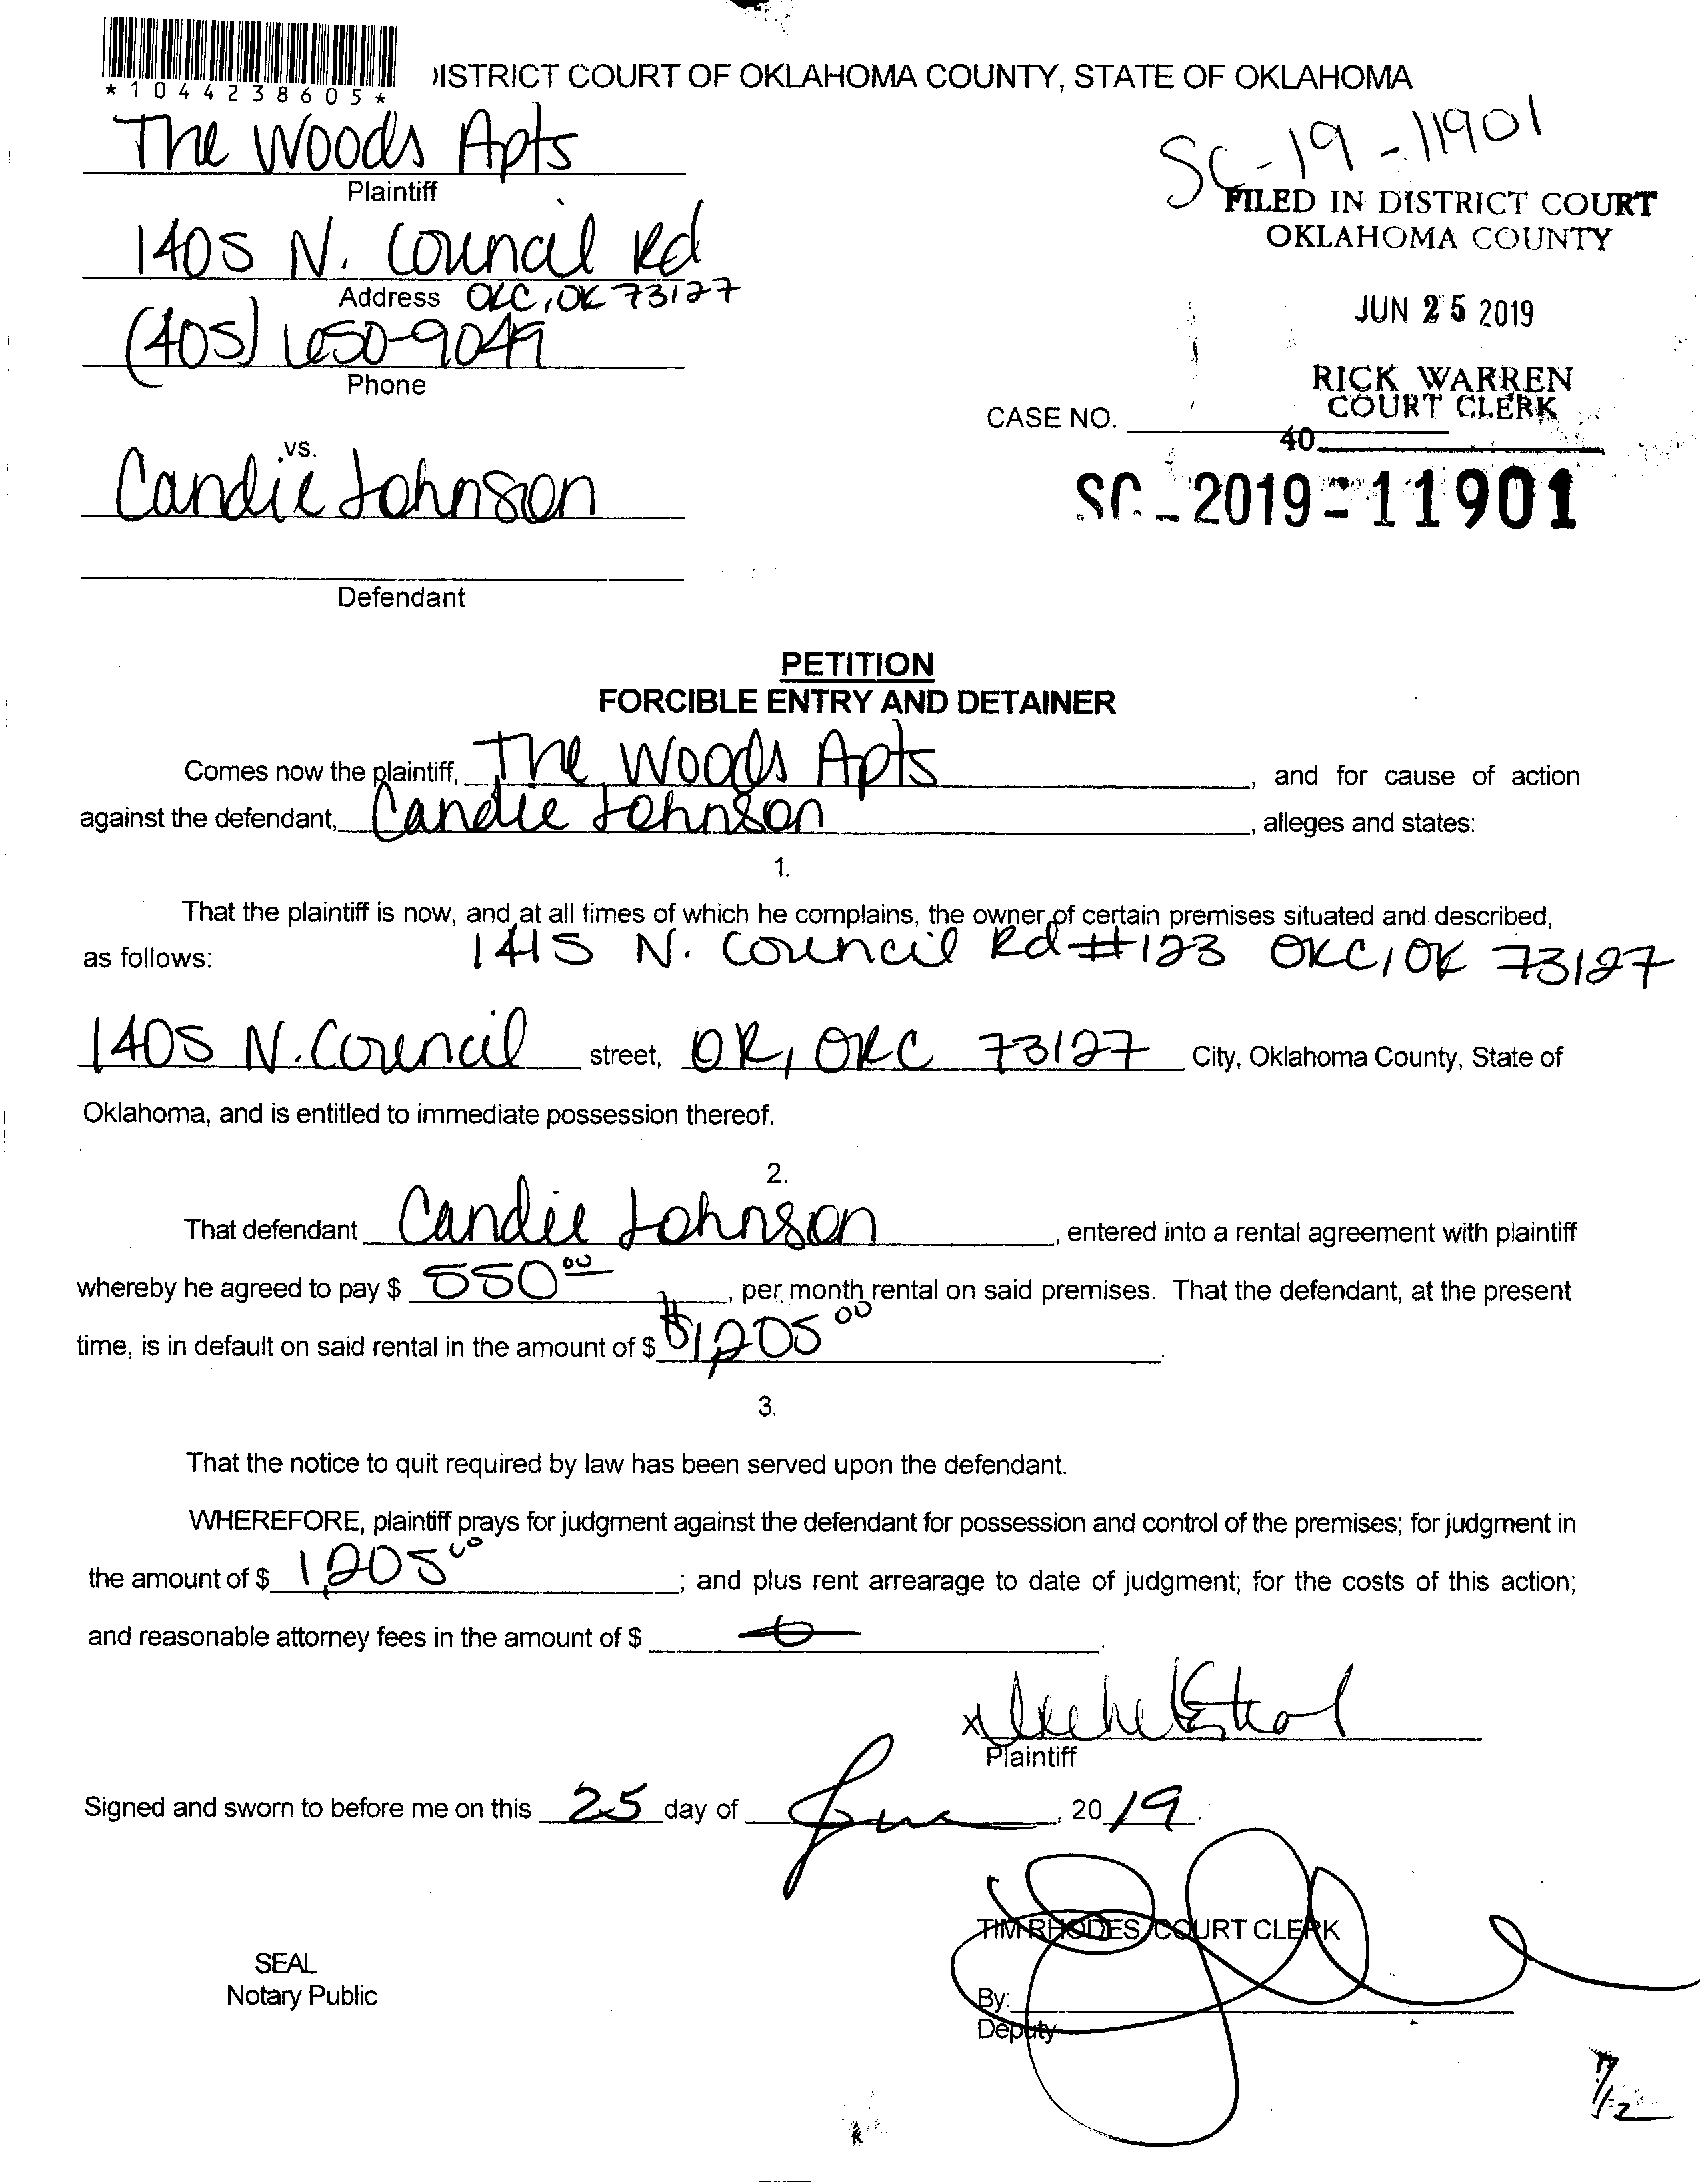 *1044238605*
DISTRICT COURT OF OKLAHOMA COUNTY, STATE OF OKLAHOMA
The Woods Apts
Plaintiff
SC-19-11901
FILED IN DISTRICT COURT
OKLAHOMA COUNTY
1405 N. Council Rd
Address OKC, OK 73127
JUN 25 2019
(405) 650-9049
Phone
RICK WARREN
COURT CLERK
CASE NO.
40
vs.
Candie Johnson
SC-2019-11901
Defendant
PETITION
FORCIBLE ENTRY AND DETAINER
Comes now the plaintiff, The Woods Apts, and for cause of action
against the defendant, Candie Johnson, alleges and states:
1.
That the plaintiff is now, and at all times of which he complains, the owner of certain premises situated and described,
as follows: 1415 N. Council Rd #123 OKC, OK 73127
1405 N. Council street, OK, OKC 73127 City, Oklahoma County, State of
Oklahoma, and is entitled to immediate possession thereof.
2.
That defendant Candie Johnson, entered into a rental agreement with plaintiff
whereby he agreed to pay $ 550.00, per month rental on said premises. That the defendant, at the present
time, is in default on said rental in the amount of $ $1,205.00.
3.
That the notice to quit required by law has been served upon the defendant.
WHEREFORE, plaintiff prays for judgment against the defendant for possession and control of the premises; for judgment in
the amount of $ 1,205.00; and plus rent arrearage to date of judgment; for the costs of this action;
and reasonable attorney fees in the amount of $ 0.
x
Plaintiff
Signed and sworn to before me on this 25 day of June, 2019.
TIM RHODES, COURT CLERK
SEAL
Notary Public
By:
Deputy
7/12